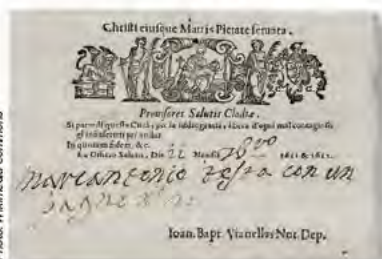 Christi eiusque Matris Pietate seruata.
Prouisores Salutis Clodiæ.
Si parte di questa Città, per la Iddio gratia, libera d'ogni mal contagioso
gl'infrascritti per andar
In quorum fidem, &c.
Ex Officio Salutis, Die 22 Mensis 1611 & 1612.
Marcantonio con un
Ioan. Bapt. Vianellus Not. Dep.
Photo: Wikimedia Commons